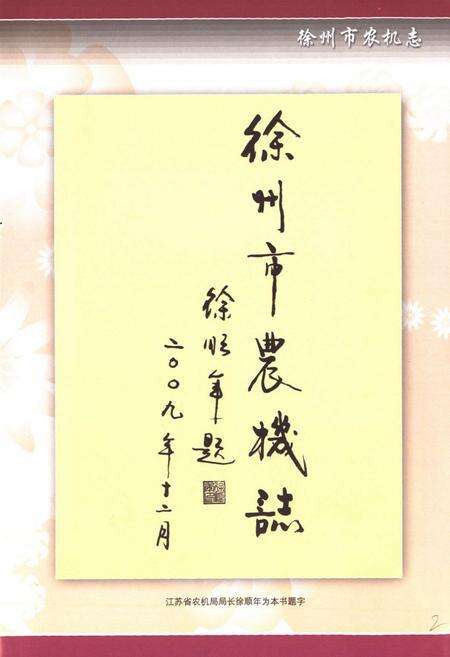 徐州市农机志
徐州市農機誌
徐順年题
二〇〇九年十二月
江苏省农机局局长徐顺年为本书题字
2